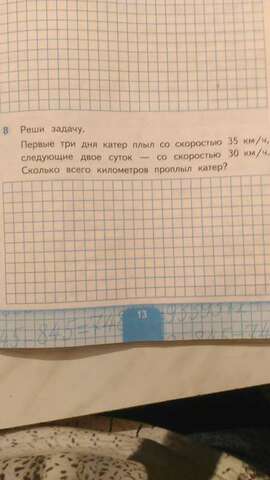 8 Реши задачу.
Первые три дня катер плыл со скоростью 35 км/ч,
следующие двое суток — со скоростью 30 км/ч.
Сколько всего километров проплыл катер?
13